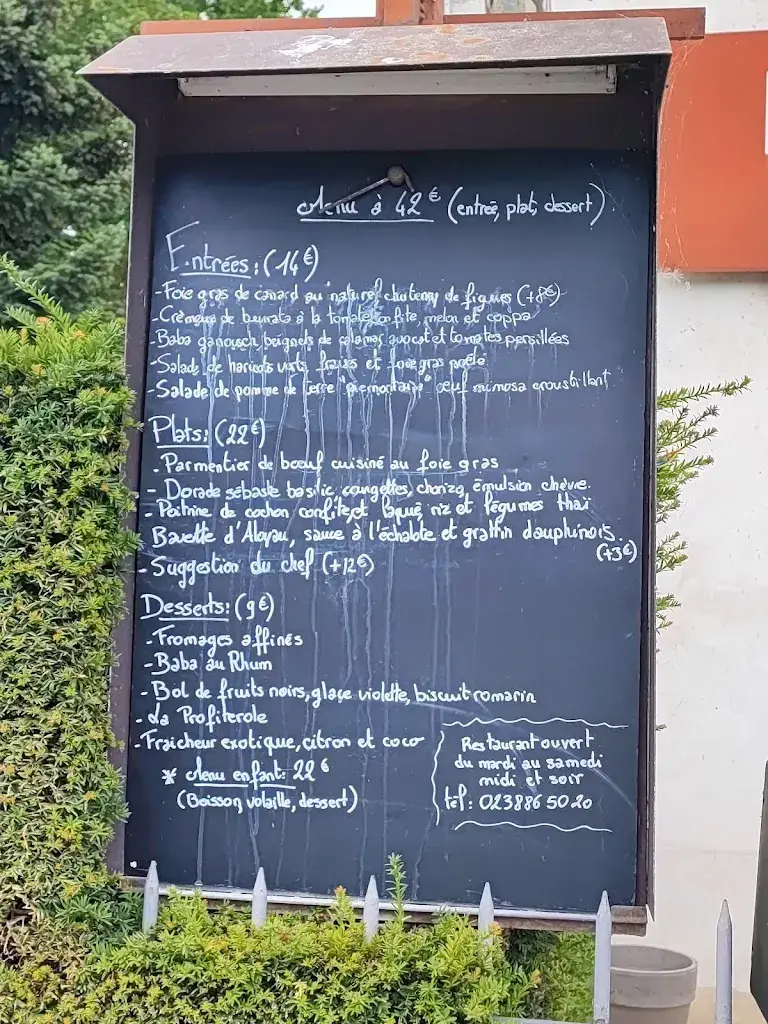 Menu à 42€ (entrée, plat, dessert)
Entrées: (14€)
- Foie gras de canard au naturel, chutney de figues (+8€)
- Crémeux de burrata à la tomate confite, melon et coppa
- Baba ganousch, beignets de calamar, avocat et tomates persillées
- Salade de haricots verts, fraises et foie gras poêlé
- Salade de pomme de terre "piémontaise" œuf mimosa croustillant
Plats: (22€)
- Parmentier de bœuf cuisiné au foie gras
- Dorade sébaste basilic, courgettes, chorizo, émulsion chèvre.
- Poitrine de cochon confite et laqué, riz et légumes thaï
Bavette d'Aloyau, sauce à l'échalote et gratin dauphinois.
(+3€)
- Suggestion du chef (+12€)
Desserts: (9€)
- Fromages affinés
- Baba au Rhum
- Bol de fruits noirs, glaçe violette, biscuit romarin
- La Profiterole
- Fraicheur exotique, citron et coco
* Menu enfant: 22€
(Boisson, volaille, dessert)
Restaurant ouvert
du mardi au samedi
midi et soir
tel: 0238865020